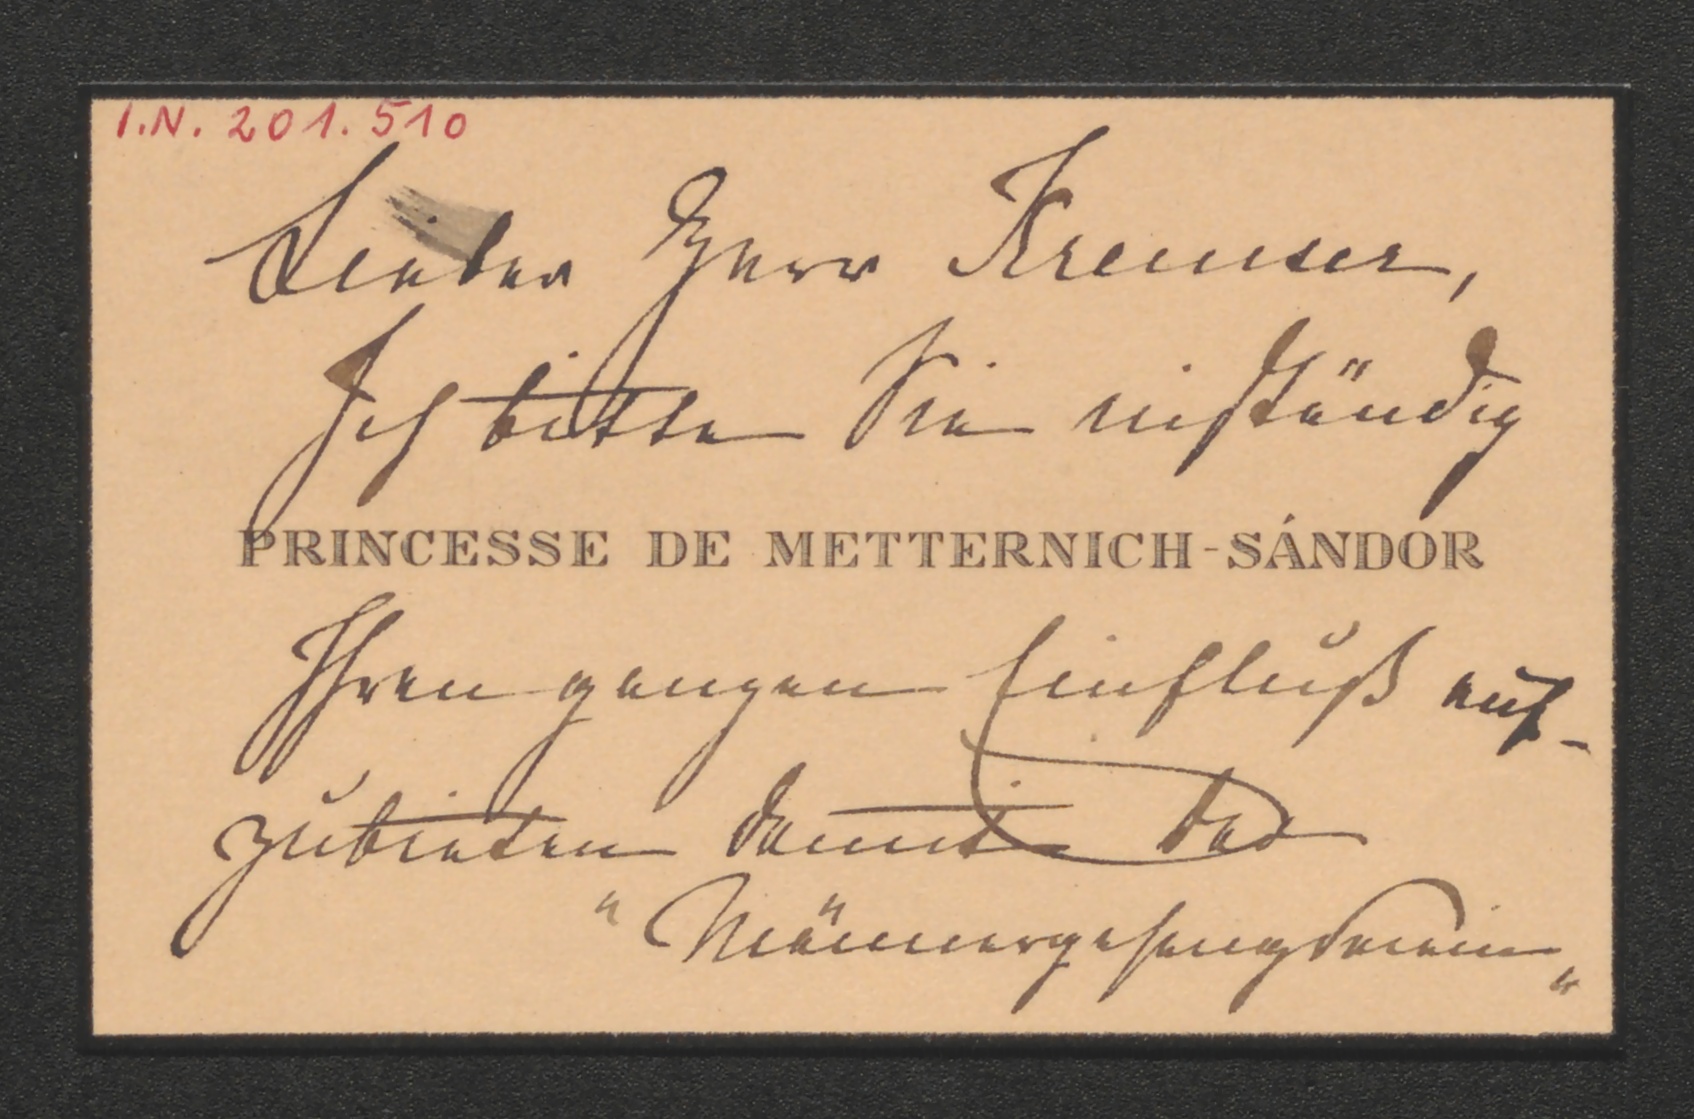 I.N. 201.510
Lieber Herr Kremser,
Ich bitte Sie inständig
PRINCESSE DE METTERNICH-SÁNDOR
Ihren ganzen Einfluß auf-
zubieten damit der
"Männergesangverein"